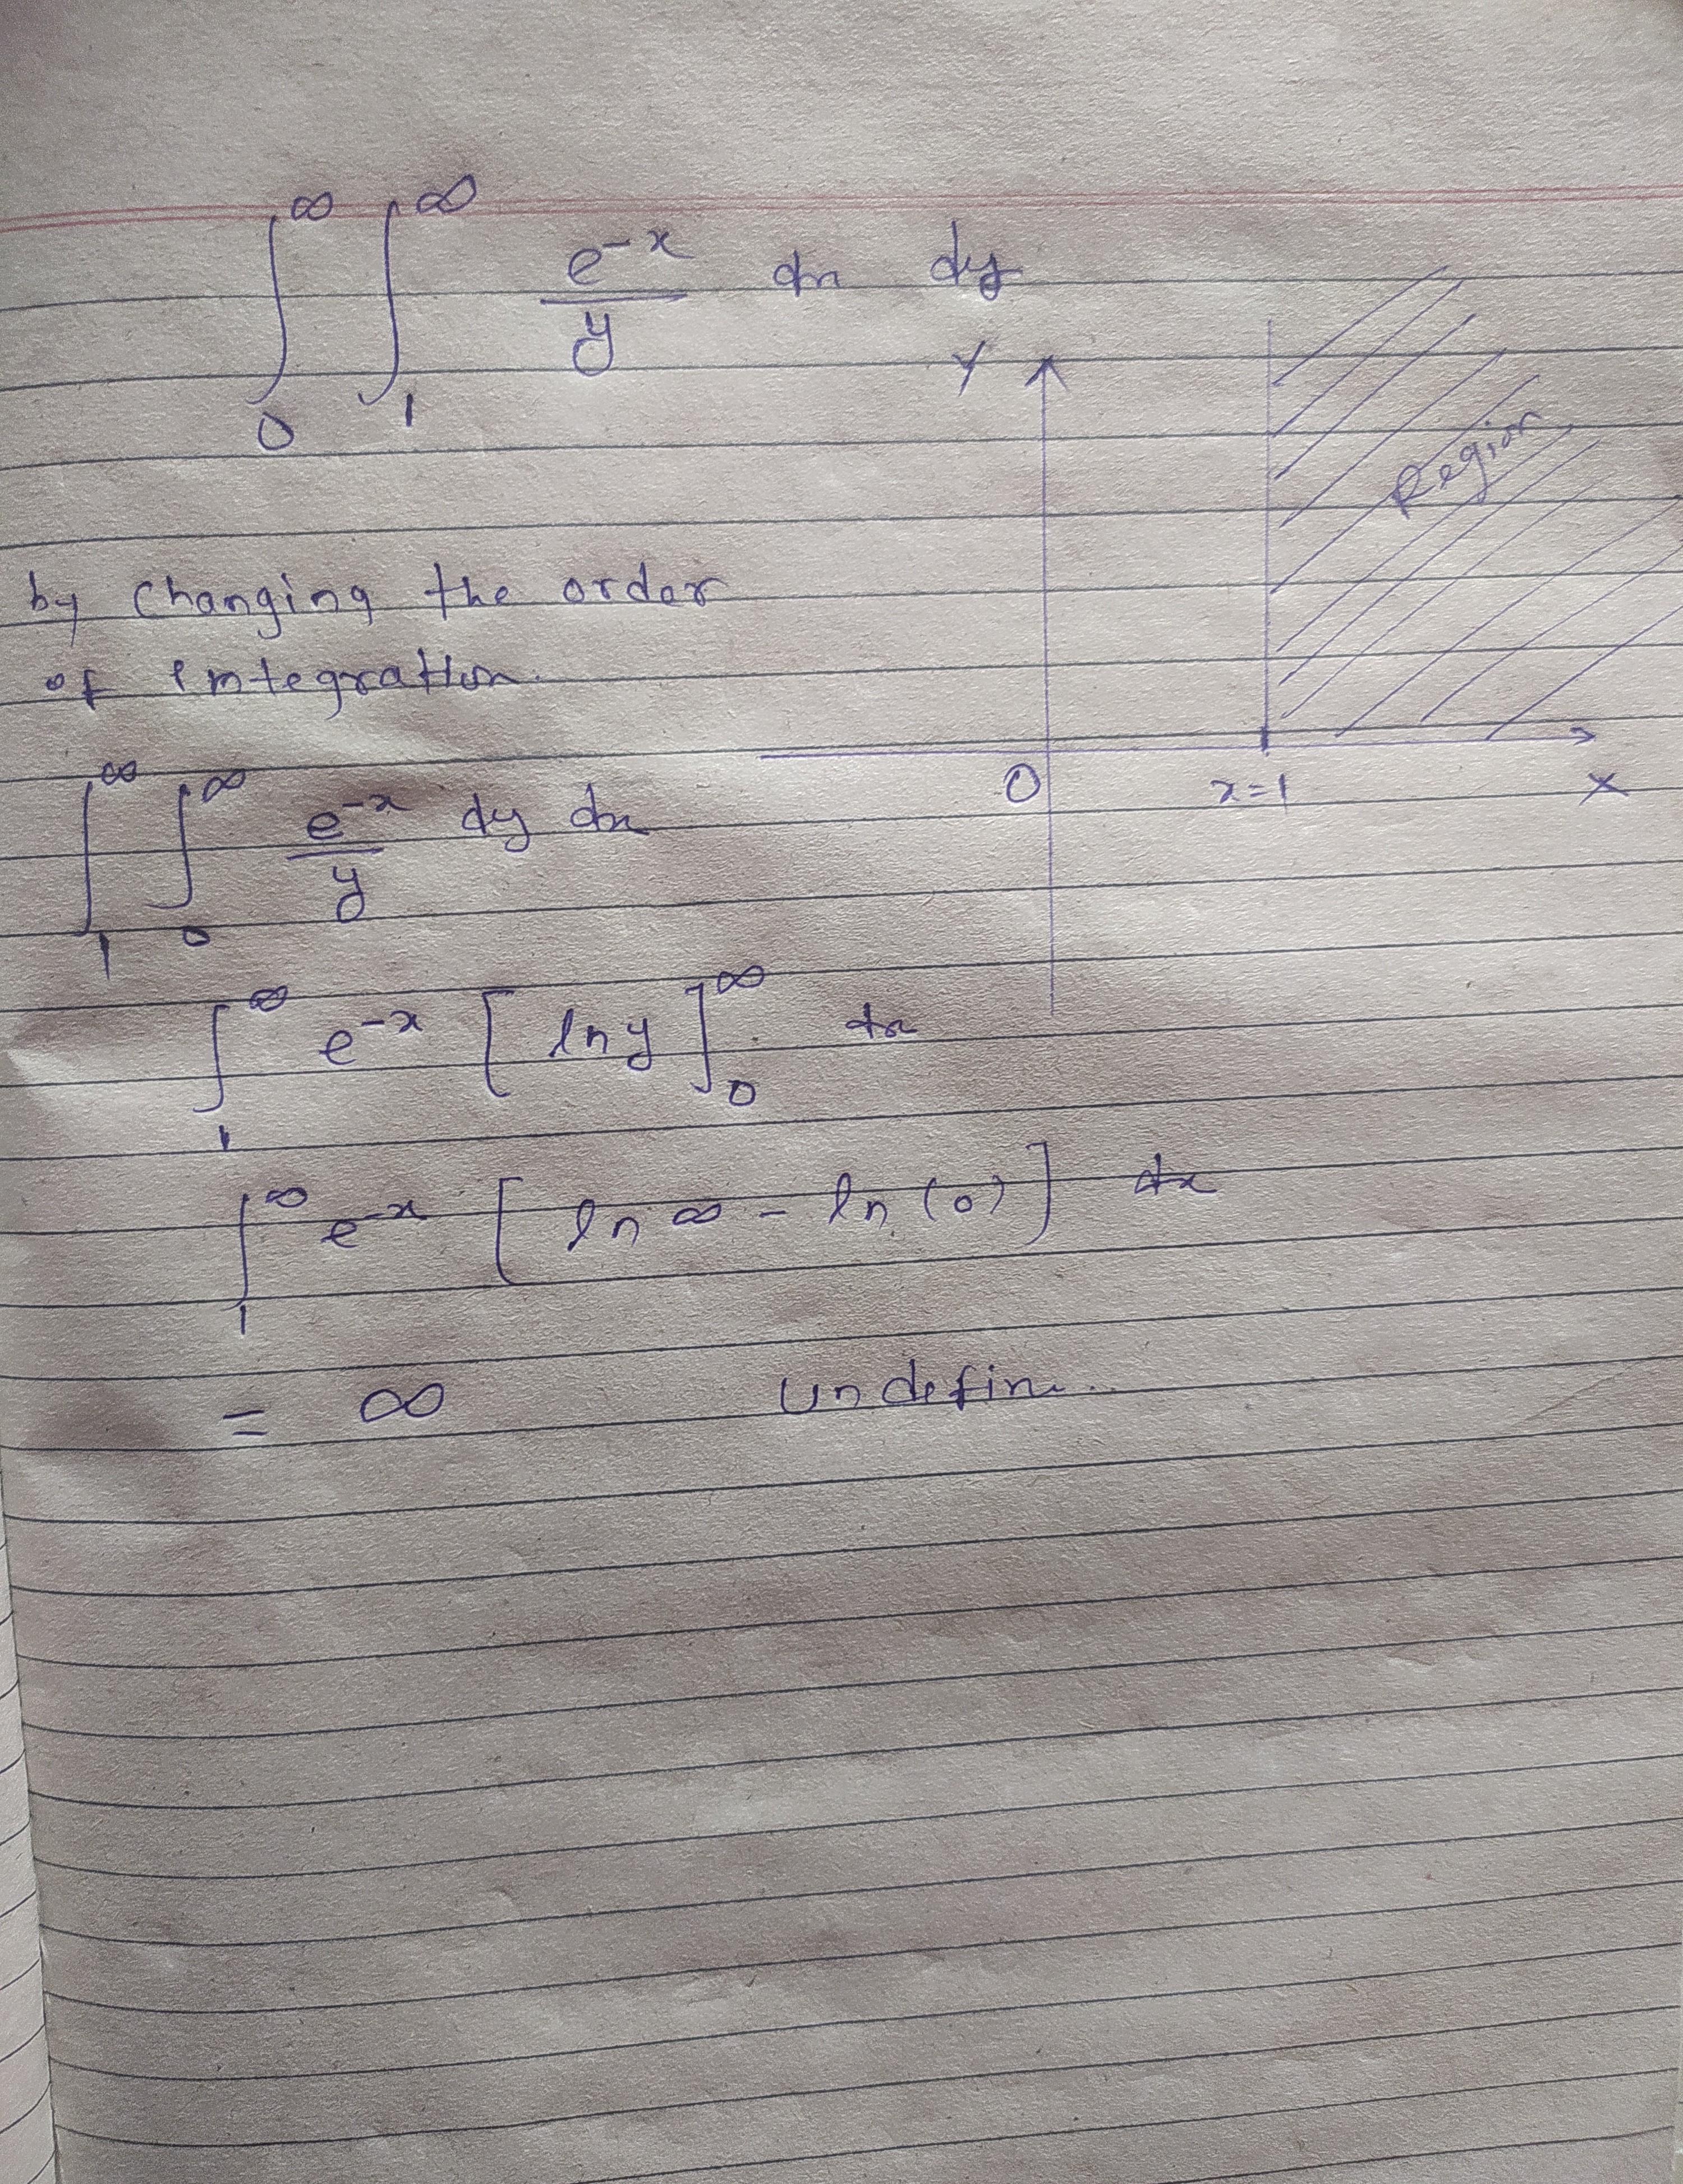 ∫₀^∞ ∫₁^∞ e^{-x}/y dx dy
Y
Region
O x=1 X
by changing the order
of integration.
∫₁^∞ ∫₀^∞ e^{-x}/y dy dx
∫₁^∞ e^{-x} [ln y]₀^∞ dx
∫₁^∞ e^{-x} [ln ∞ - ln (0)] dx
= ∞ undefine..